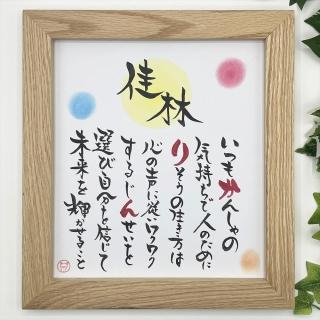 佳林
いつもかんしゃの
気持ちで人のために
りそうの生き方は
心の声に従いワクワク
するじんせいを
選び自分を信じて
未来を輝かせること